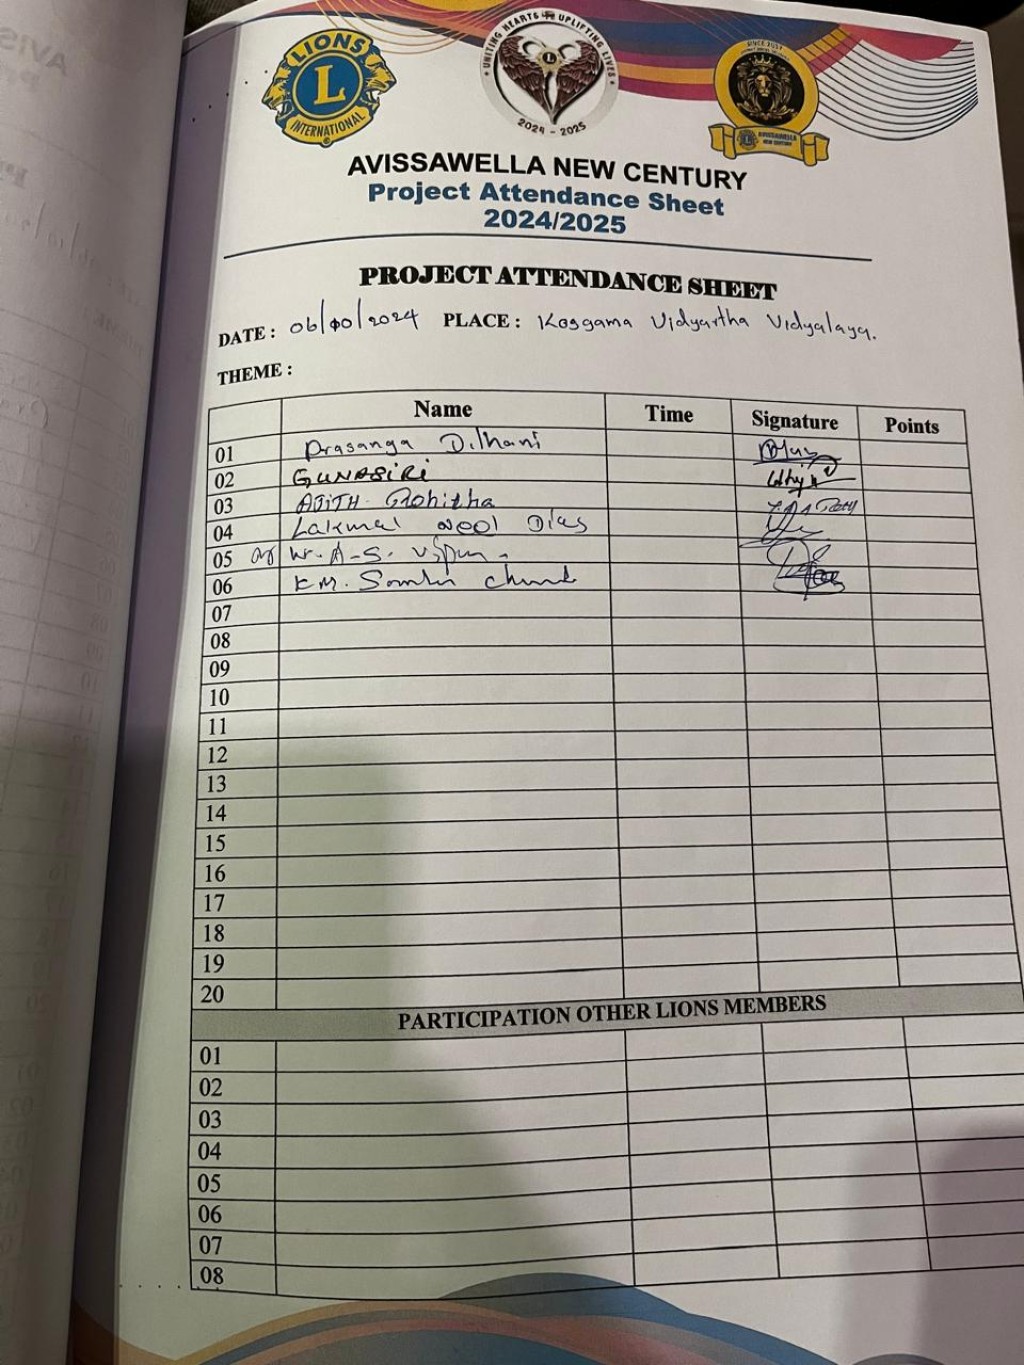 LIONS
L
INTERNATIONAL
UNITING HEARTS UPLIFTING LIVES
2024 - 2025
SINCE 2021
AVISSAWELLA
NEW CENTURY
AVISSAWELLA NEW CENTURY
Project Attendance Sheet
2024/2025
PROJECT ATTENDANCE SHEET
DATE : 06/10/2024 PLACE : Kosgama Vidyartha Vidyalaya.
THEME :
Name Time Signature Points
01 Prasanga Dilhani
02 GUNASIRI
03 AJITH Rohitha
04 Lakmal Neel Dias
05 W. A-S.
06 K.M.
07
08
09
10
11
12
13
14
15
16
17
18
19
20
PARTICIPATION OTHER LIONS MEMBERS
01
02
03
04
05
06
07
08